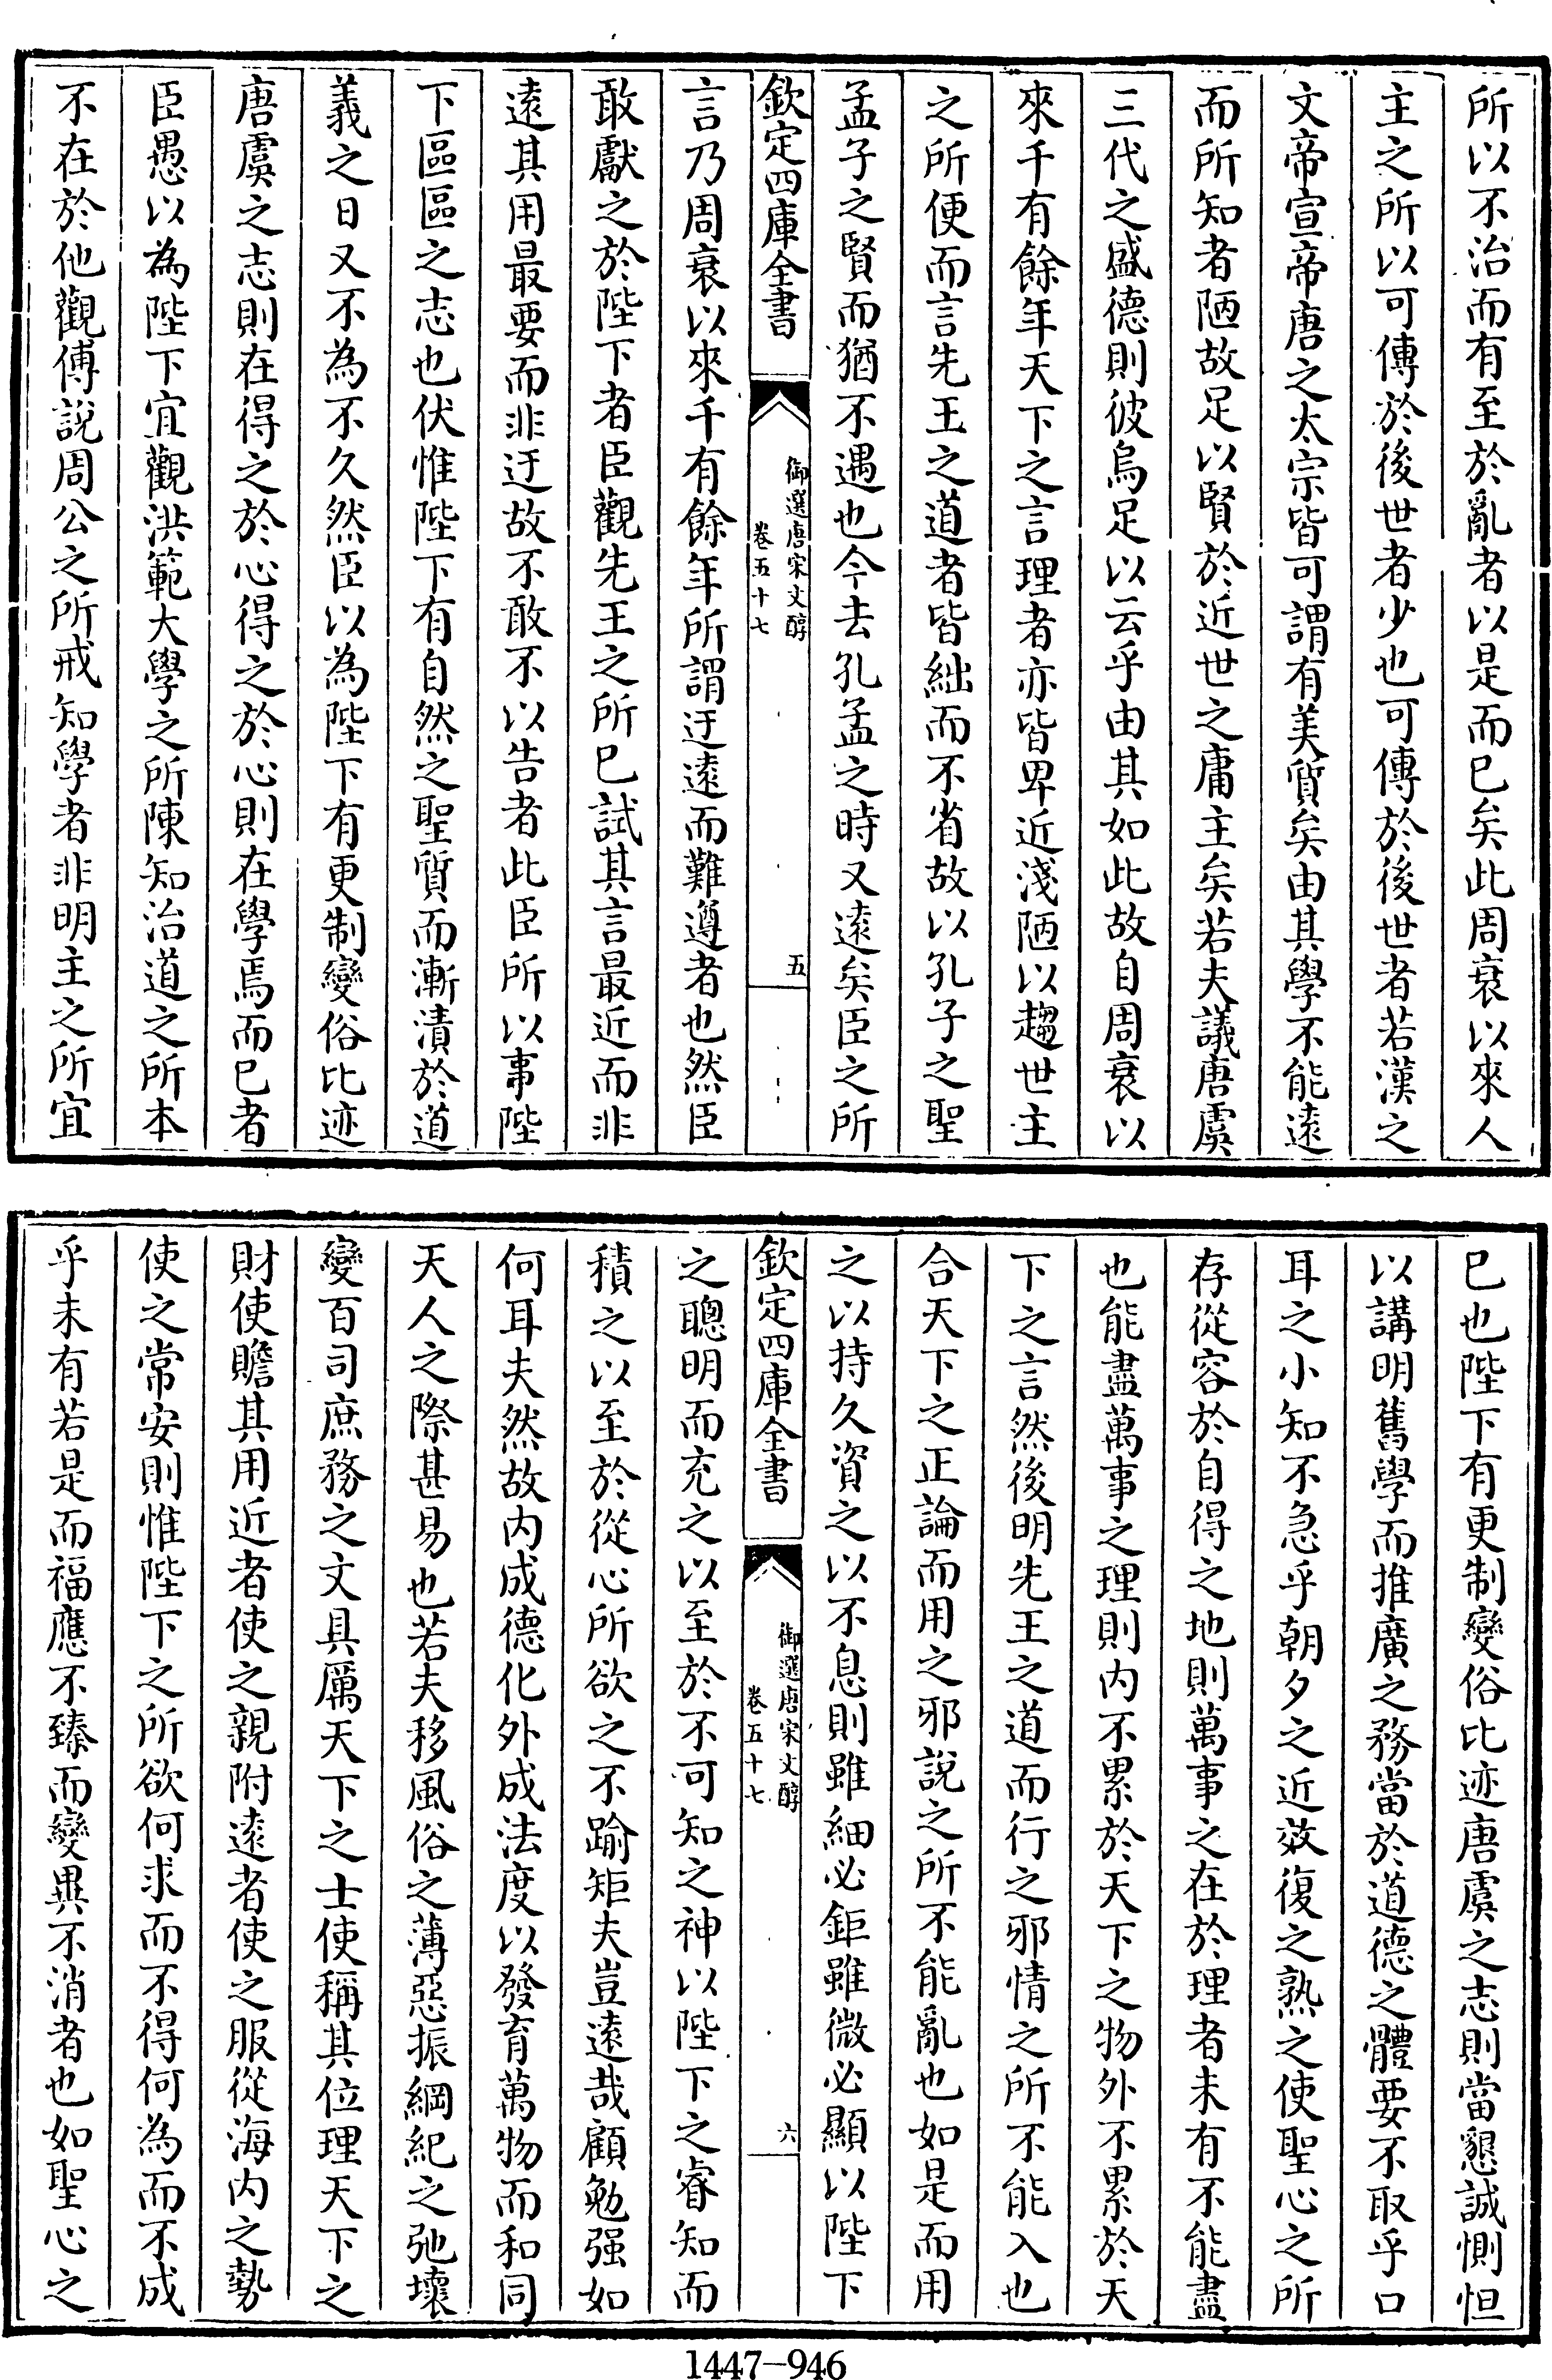 所以不治而有至於亂者以是而已矣此周衰以來人
主之所以可傳於後世者少也可傳於後世者若漢之
文帝宣帝唐之太宗皆可謂有美質矣由其學不能遠
而所知者陋故足以賢於近世之庸主矣若夫議唐虞
三代之盛德則彼烏足以云乎由其如此故自周衰以
來千有餘年天下之言理者亦皆卑近淺陋以趨世主
之所便而言先王之道者皆絀而不省故以孔子之聖
孟子之賢而猶不遇也今去孔孟之時又遠矣臣之所
欽定四庫全書
御選唐宋文醇
卷五十七
五
言乃周衰以來千有餘年所謂迂遠而難遵者也然臣
敢獻之於陛下者臣觀先王之所已試其言最近而非
遠其用最要而非迂故不敢不以告者此臣所以事陛
下區區之志也伏惟陛下有自然之聖質而漸漬於道
義之日又不為不久然臣以為陛下有更制變俗比迹
唐虞之志則在得之於心得之於心則在學焉而已者
臣愚以為陛下宜觀洪範大學之所陳知治道之所本
不在於他觀傅說周公之所戒知學者非明主之所宜
已也陛下有更制變俗比迹唐虞之志則當懇誠惻怛
以講明舊學而推廣之務當於道德之體要不取乎口
耳之小知不急乎朝夕之近效復之熟之使聖心之所
存從容於自得之地則萬事之在於理者未有不能盡
也能盡萬事之理則内不累於天下之物外不累於天
下之言然後明先王之道而行之邪情之所不能入也
合天下之正論而用之邪說之所不能亂也如是而用
之以持久資之以不息則雖細必鉅雖微必顯以陛下
欽定四庫全書
御選唐宋文醇
卷五十七
六
之聰明而充之以至於不可知之神以陛下之睿知而
積之以至於從心所欲之不踰矩夫豈遠哉顧勉强如
何耳夫然故内成德化外成法度以發育萬物而和同
天人之際甚易也若夫移風俗之薄惡振綱紀之弛壞
變百司庶務之文具厲天下之士使稱其位理天下之
財使贍其用近者使之親附遠者使之服從海内之勢
使之常安則惟陛下之所欲何求而不得何為而不成
乎未有若是而福應不臻而變異不消者也如聖心之
1447-946